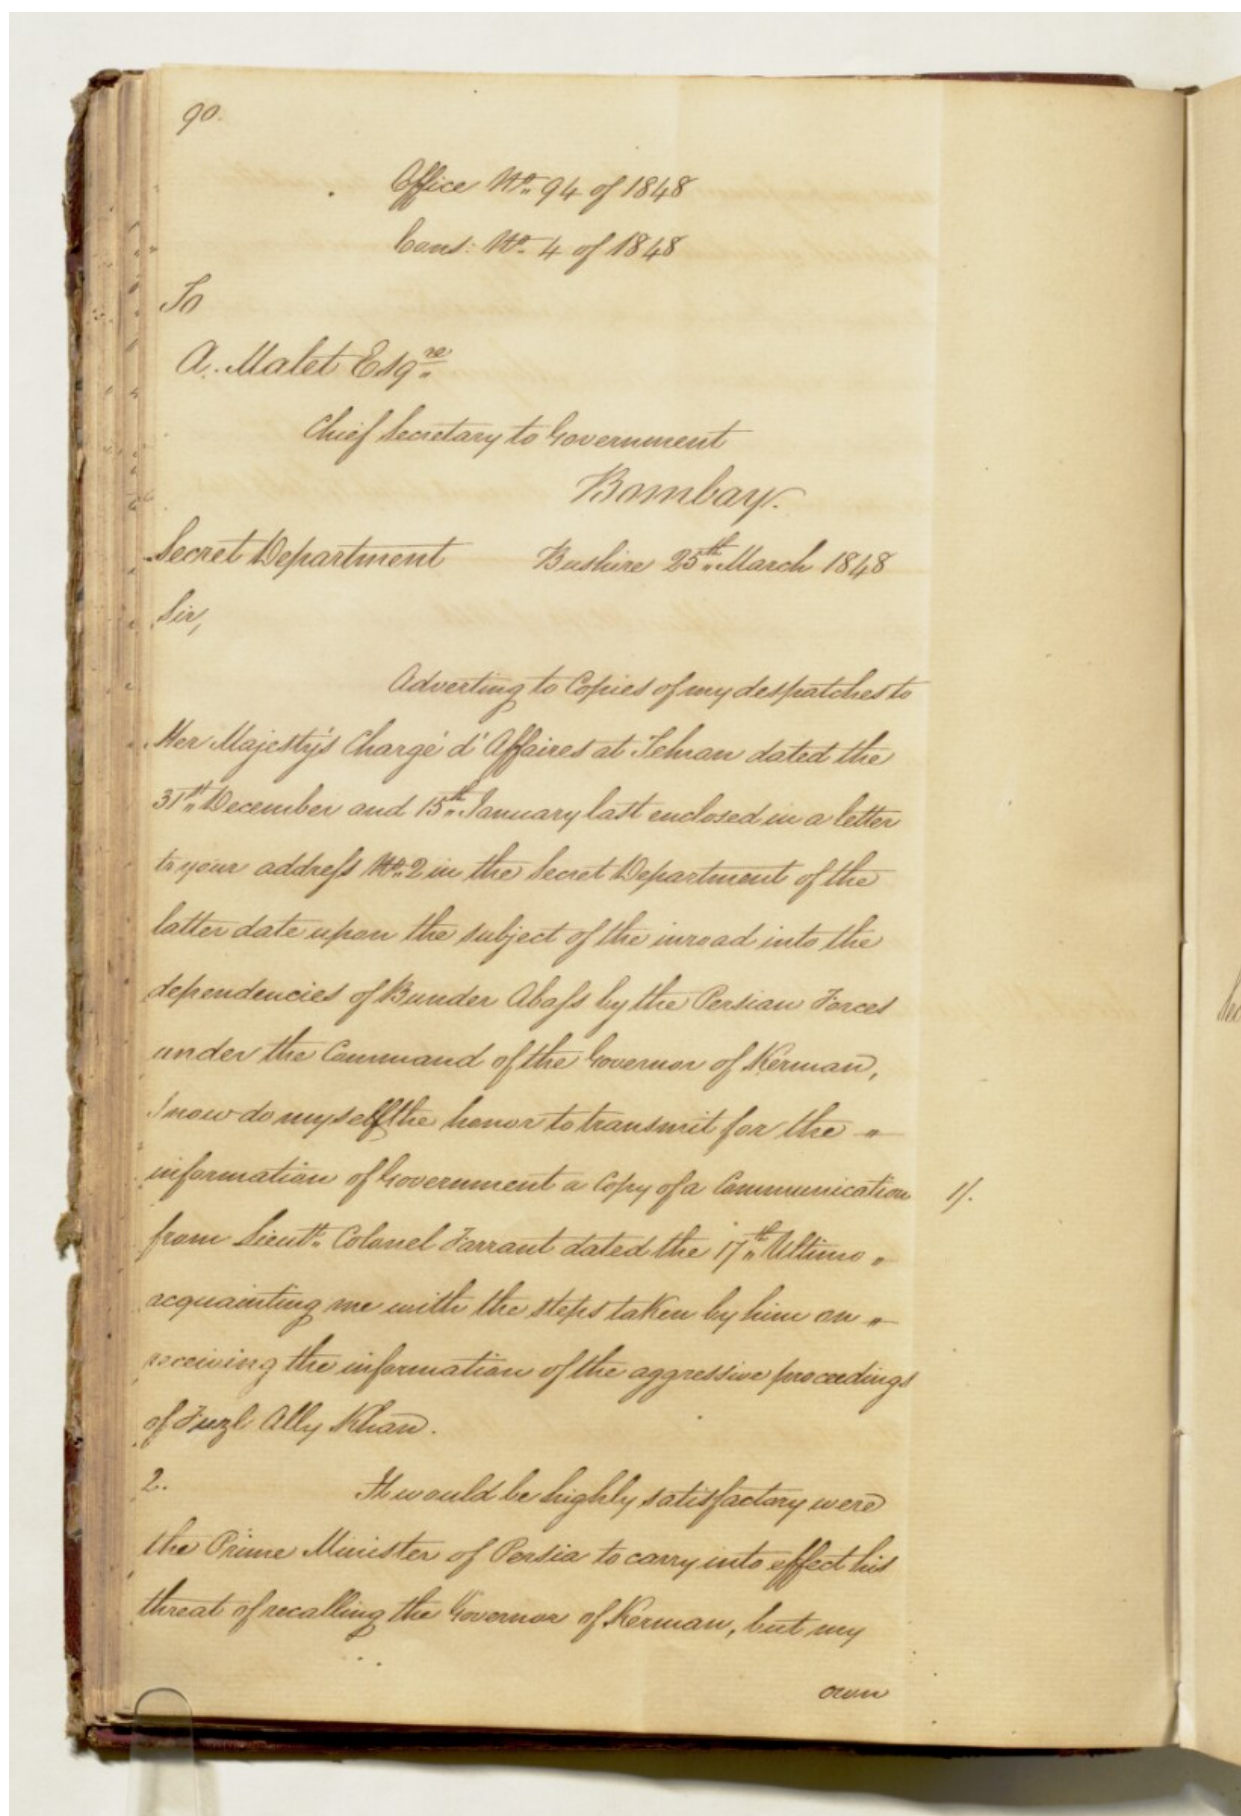 90.
Office No. 94 of 1848
Cons: No. 4 of 1848
To
A. Malet Esqre
Chief Secretary to Government
Bombay.
Secret Department Bushire 25th March 1848
Sir,
Adverting to Copies of my despatches to
Her Majesty's Chargé d'Affaires at Tehran dated the
31st December and 15th January last enclosed in a letter
to your address No. 2 in the Secret Department of the
latter date upon the subject of the inroad into the
dependencies of Bunder Abass by the Persian Forces
under the Command of the Governor of Kerman,
I now do myself the honor to transmit for the "
information of Government a Copy of a Communication 1/.
from Lieutt. Colonel Farrant dated the 17th Ultimo "
acquainting me with the steps taken by him on "
receiving the information of the aggressive proceedings
of Fuzl Ally Khan.
2. It would be highly satisfactory were
the Prime Minister of Persia to carry into effect his
threat of recalling the Governor of Kerman, but my
own